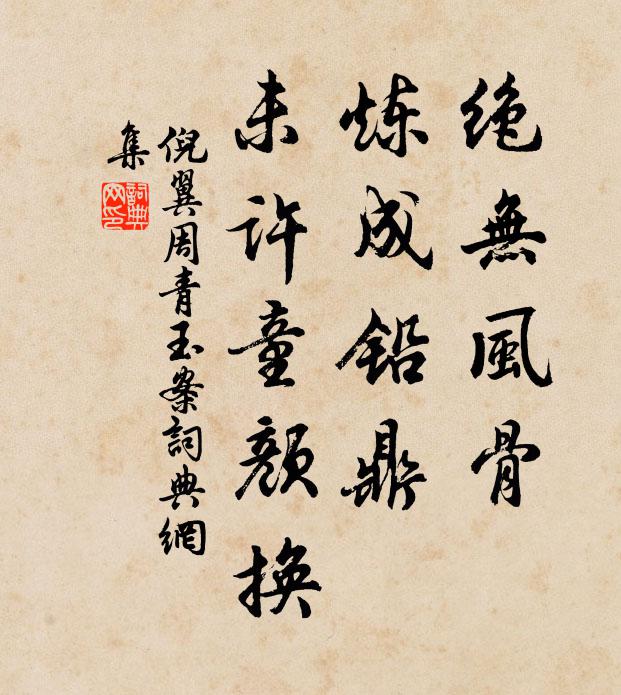 绝無風骨
炼成铅鼎
未许童颜換
倪翼周青玉案詞典網
集
詞典
网印